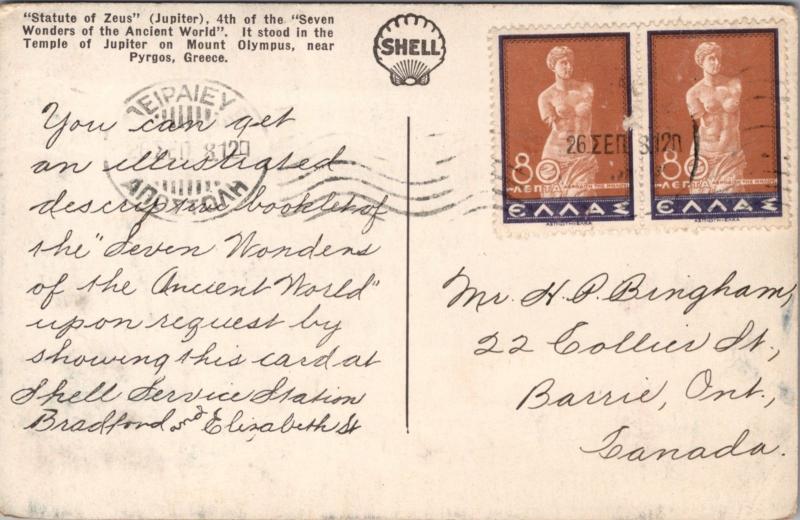 "Statute of Zeus" (Jupiter), 4th of the "Seven
Wonders of the Ancient World". It stood in the
Temple of Jupiter on Mount Olympus, near
Pyrgos, Greece.
SHELL
ΠΕΙΡΑΙΕΥΣ
ΣΕΠ 8 1 20
ΑΠΟΣΤΟΛΗ
26 ΣΕΠ 8 1 20
80
ΛΕΠΤΑ
ΕΛΛΑΣ
80
ΛΕΠΤΑ
ΕΛΛΑΣ
You can get
an illustrated
descriptive booklet of
the "Seven Wonders
of the Ancient World"
upon request by
showing this card at
Shell Service Station
Bradford and Elizabeth St
Mr. H. P. Bingham,
22 Collier St.,
Barrie, Ont.,
Canada.